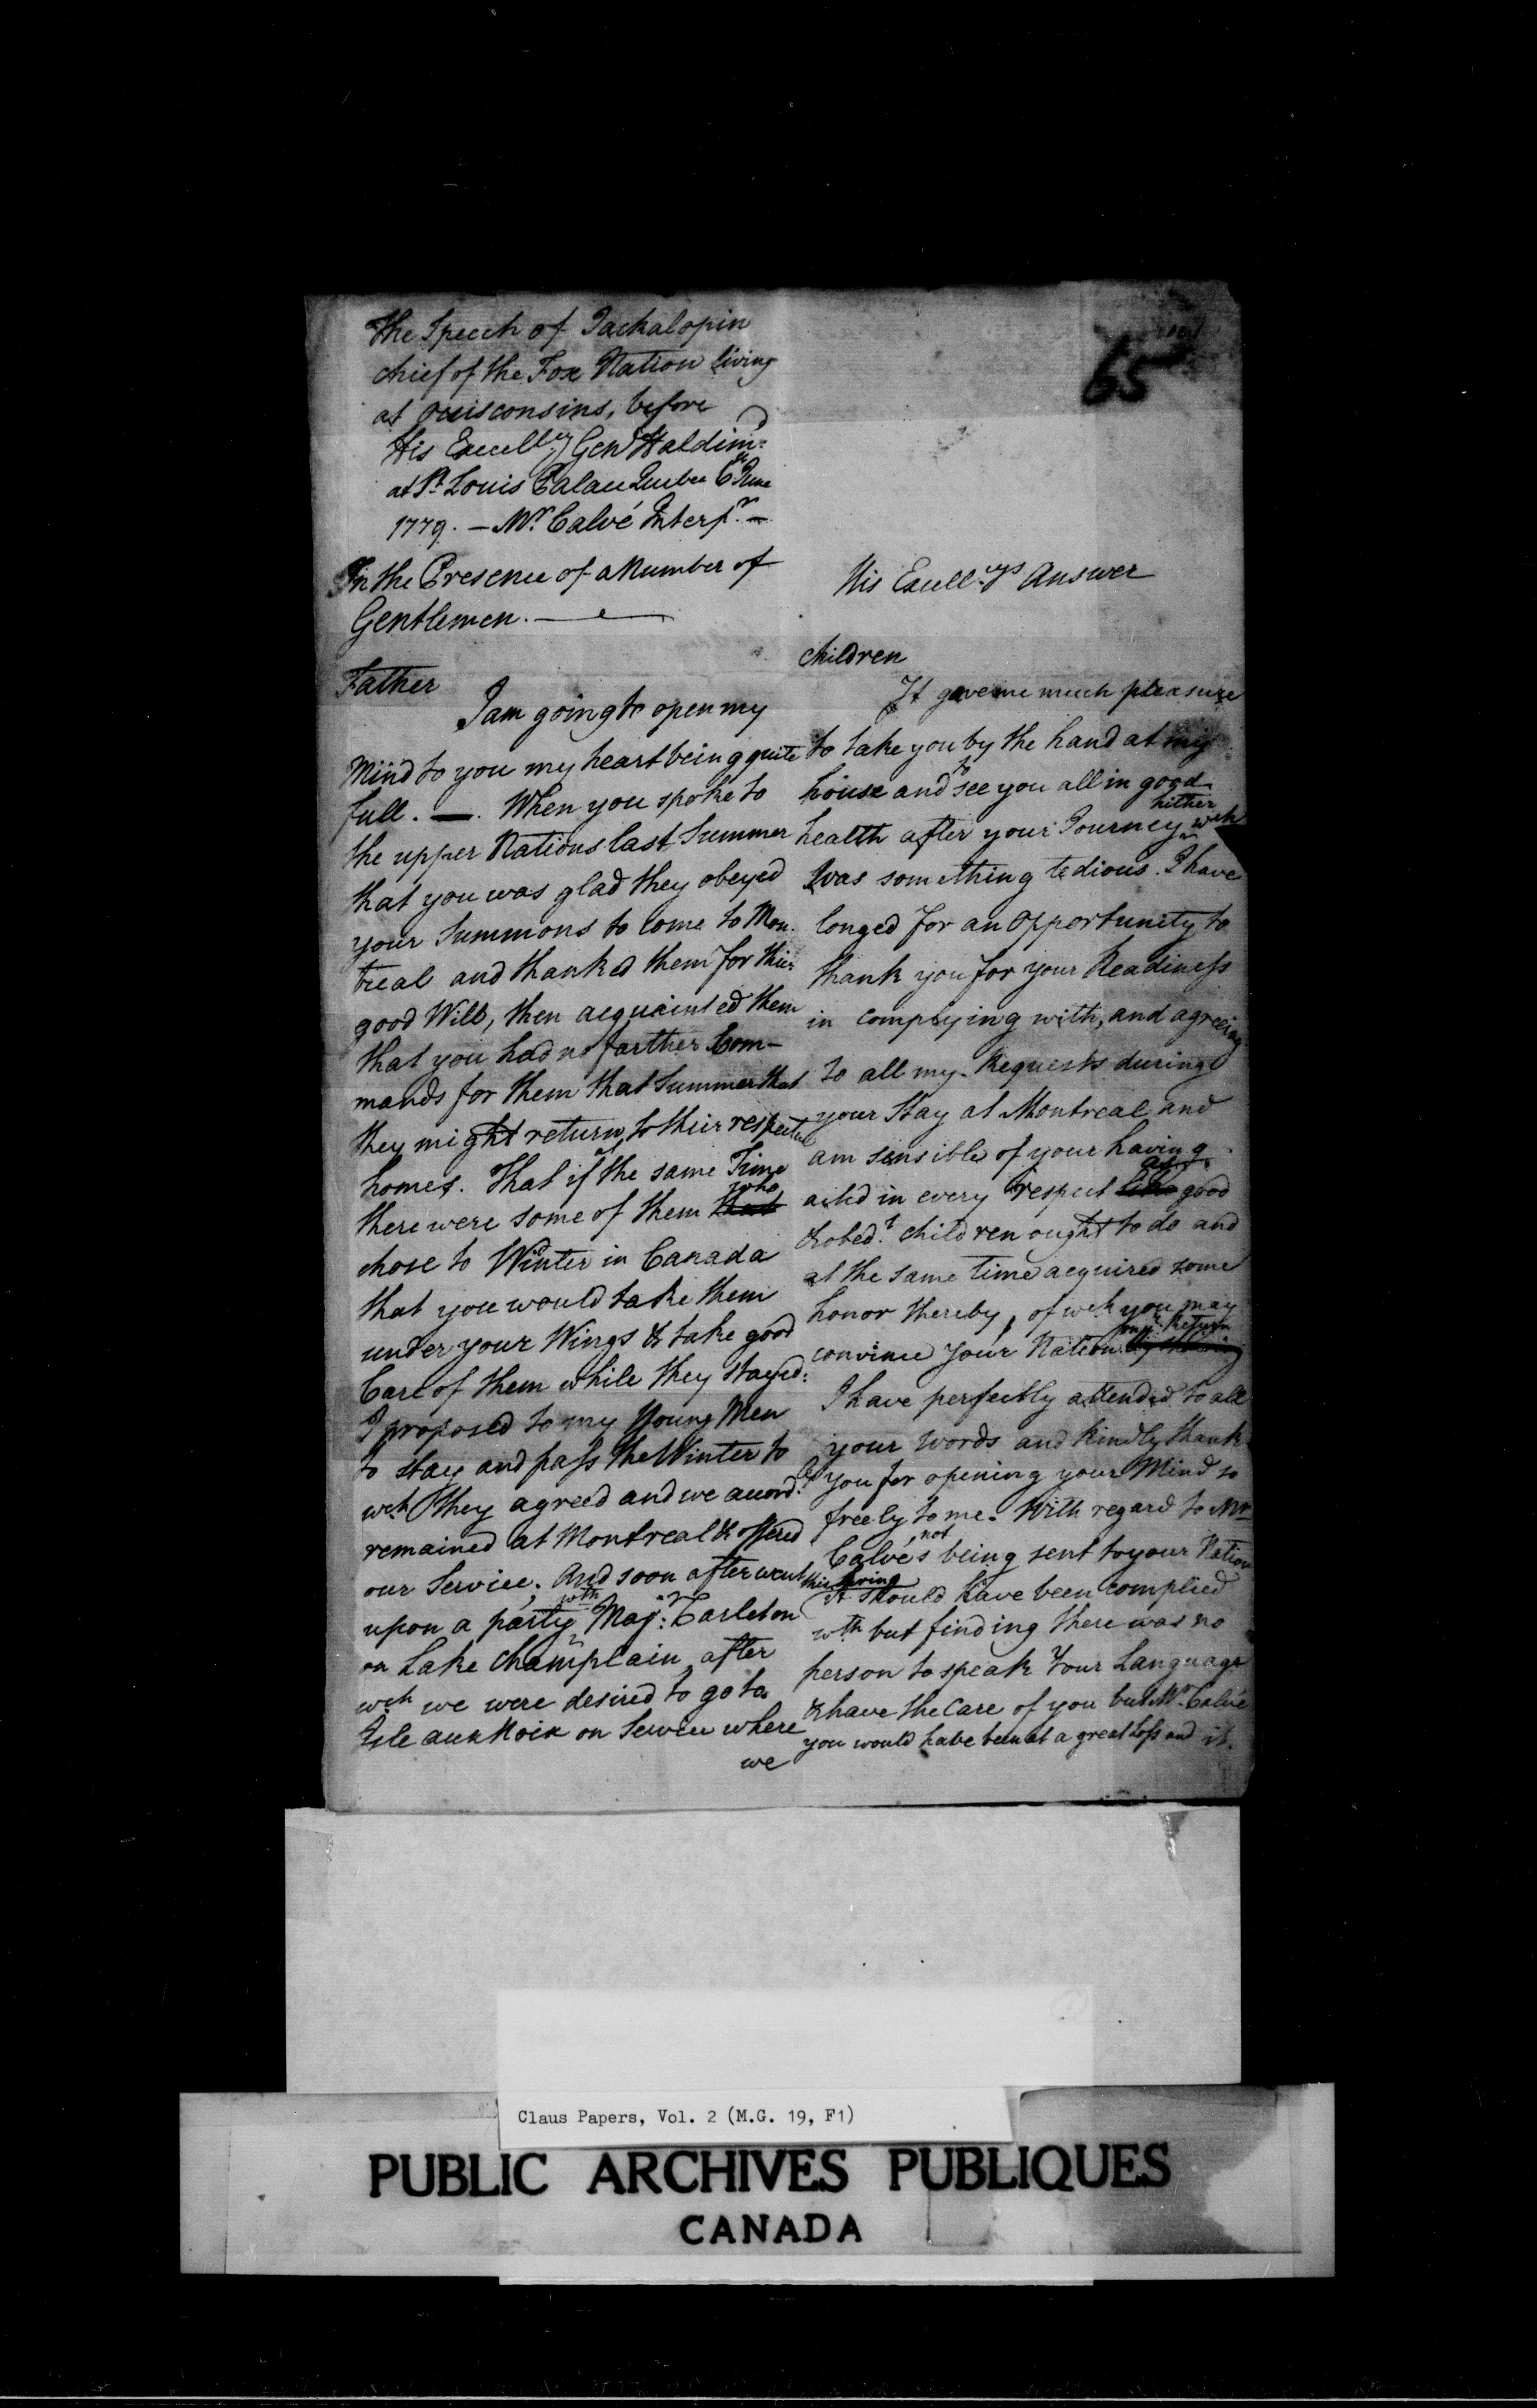 65
The Speech of Jackalopin
chief of the Fox Nation living
at Ouisconsins, before
His Excell:cy Gen:l Haldim:d
at St. Louis Palace Quebec 6th June
1779. — Mr. Calvé Interpr. —
In the Presence of a Number of
Gentlemen. —
Father
I am going to open my
Mind to you my heart being quite
full. —. When you spoke to
the upper Nations last Summer
that you was glad they obeyed
your Summons to come to Mon-
treal and thanked them for their
good Will, then acquainted them
that you had no farther Com-
mands for them that Summer that
they might return to their respective
homes. That if at the same Time
there were some of them that who
chose to Winter in Canada
that you would take them
under your Wings & take good
Care of them while they stayed:
I proposed to my Young Men
to stay and pass the Winter to
wch. they agreed and we accord:ly
remained at Montreal & offered
our Service. And soon after went
upon a party wth Maj:r Carleton
on Lake Champlain, after
wch we were desired to go to
Isle aux Noix on Service where
we
His Excell:cys Answer
Children
It gave me much pleasure
to take you by the hand at my
house and to see you all in good
health after your Journey hither wch
was something tedious. I have
longed for an Opportunity to
thank you for your Readiness
in complying with, and agreeing
to all my Requests during
your Stay at Montreal and
am sensible of your having
acted in every respect like as good
& obed:t children ought to do and
at the same time acquired some
honor thereby, of wch you may
convince your Nation on yr. Return
I have perfectly attended to all
your words and kindly thank
you for opening your Mind so
freely to me. With regard to Mr.
Calvé's not being sent to your Nation
this Spring It should have been complied
wth but finding there was no
person to speak Your Language
& have the Care of you but Mr. Calvé
you would have been at a great Loss and it.
Claus Papers, Vol. 2 (M.G. 19, F1)
PUBLIC ARCHIVES PUBLIQUES
CANADA